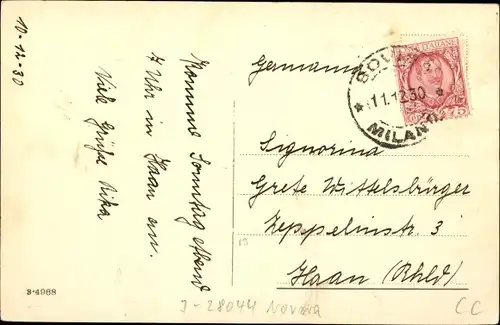 10-12-30
Komme Sonntag abend
7 Uhr in Haan an.
Viele Grüße Nika
3-4968
Germania
MILANO
11.12.30
POSTE ITALIANE
75
Signorina
Grete Wittelsbürger
Zeppelinstr 3
Haan (Rhld)
J-28044 Novara
CC